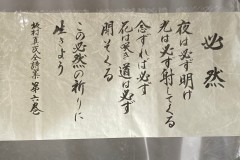 必然
夜は必ず明け
光は必ず射してくる
念ずれば必ず
花は咲き道は必ず
開けてくる
この必然の祈りに
生きよう
坂村真民全詩集第六巻